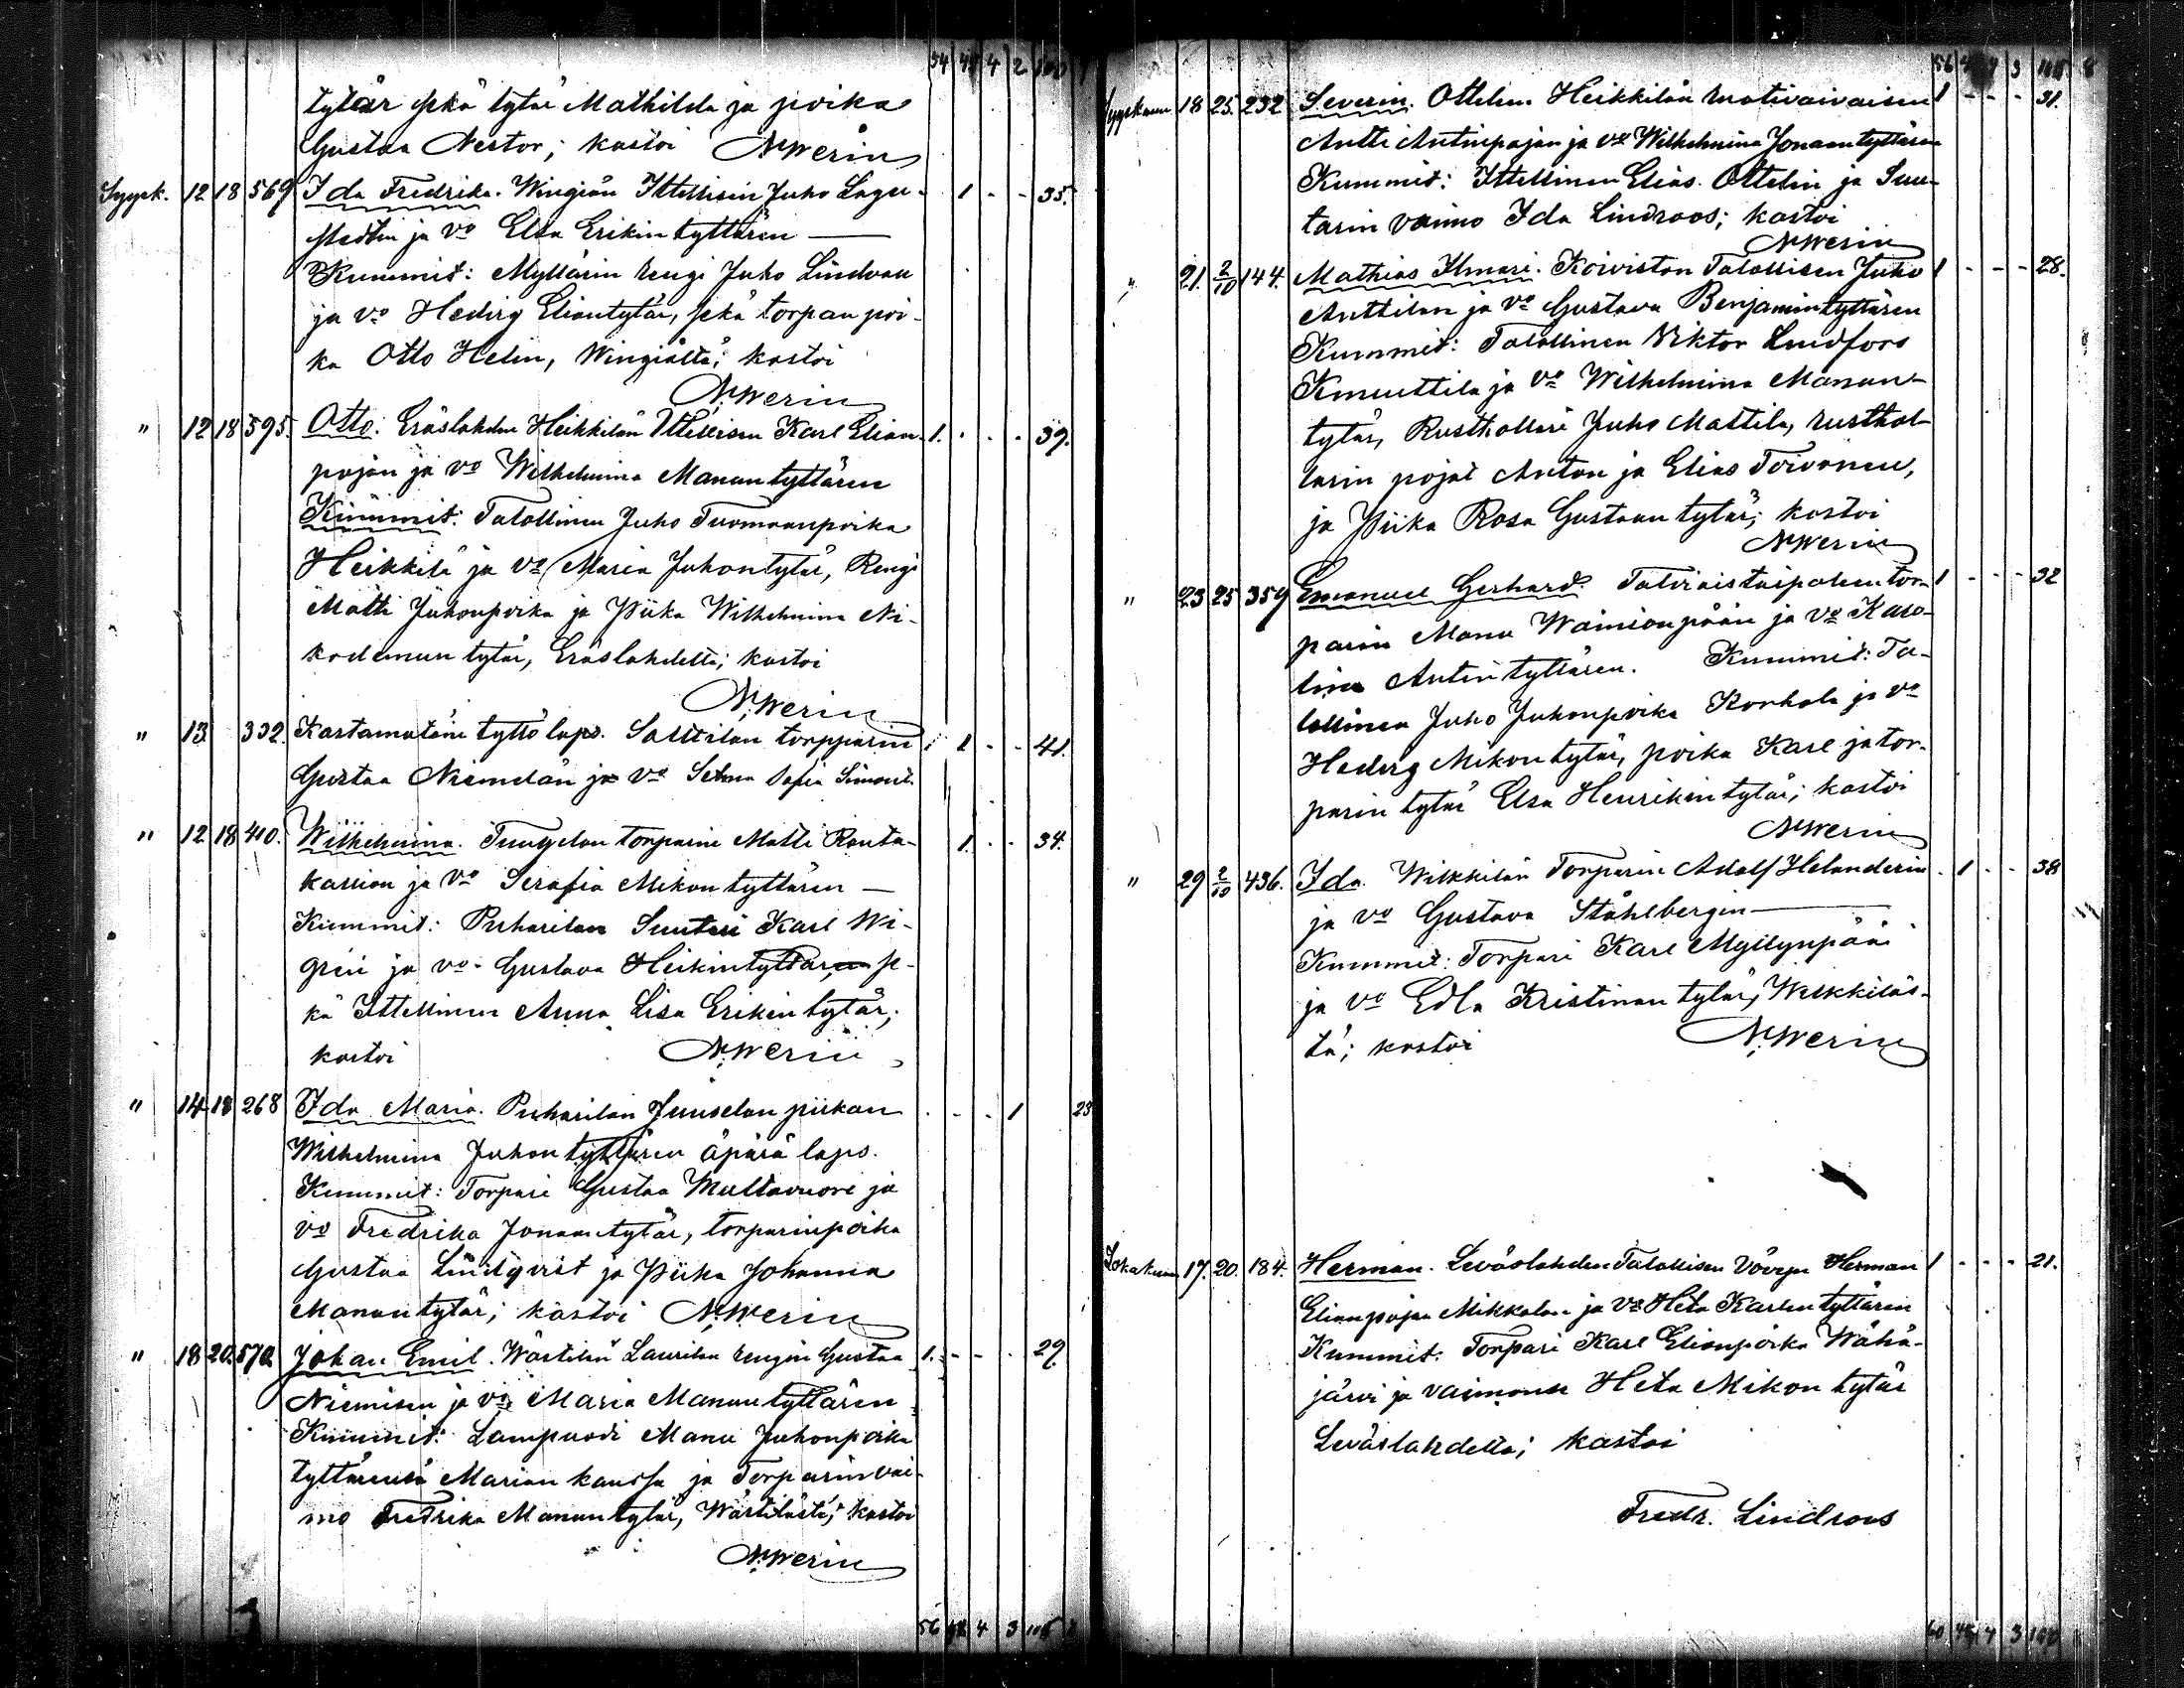 54 48 4 2 100
tytär sekä tytär Mathilda ja poika
Gustaa Nestor; kastoi N. Werin
Syysk. 12 18 569 Ida Fredrika. Wingiän Ittellisen Juho Lager- 1 - - 35.
stedtin ja vo Elsa Erikin tyttären
Kummit: Myllärin rengi Juho Lindroos
ja vo Hedvig Eliantytär, sekä torpan poi-
ka Otto Helin, Wingiältä; kastoi
N. Werin
" 12 18 595. Otto. Eräslahden Heikkilän Ittellisen Karl Elian- 1. - - - 39.
pojan ja vo Wilhelmina Manuntyttären
Kummit: Talollinen Juho Tuomaanpoika
Heikkilä ja vo Maria Juhontytär, Rengi
Matti Juhonpoika ja Piika Wilhelmina Ni-
kodemuntytär, Eräslahdelta; kastoi
N. Werin
" 13 332. Kastamatoin tyttö laps. Salttilan torpparin 1 - - 41.
Gustaa Niemelän ja vo Selma Sofia Simont.
" 12 18 410. Wilhelmina. Tuugelan torparin Matti Rauta- 1. - - 34.
kallion ja vo Serafia Mikon tyttären
Kummit: Puharilan Suutari Karl Wi-
grén ja vo Gustava Heikintyttären se-
kä Ittellinen Anna Lisa Erikin tytär;
kastoi N. Werin
" 14 18 268 Ida Maria. Puharilan Juuselan piikan - - - 1 23
Wilhelmina Juhon tyttären äpärä laps.
Kummit: Torpari Gustaa Multavuori ja
vo Fredrika Jonaantytär, torparinpoika
Gustaa Lindqvist ja Piika Johanna
Manuntytär; kastoi N. Werin
" 18 20. 570. Johan Emil. Wästilän Laurilan rengin Gustaa 1. - - - 29
Niemisen ja vo Maria Manuntyttären
Kummit: Lampuodi Manu Juhonpoika
tyttärensä Marian kanssa ja Torparin vai-
mo Fredrika Manuntytär, Wästilästä; kastoi
N. Werin
56 48 4 3 105
56 4 3 105 8
Syyskuun 18 25. 232 Severin. Ottelin Heikkilän ruotivaivaisen 1 - - - 31.
Antti Antinpojan ja vo Wilhelmina Jonaantyttären
Kummit: Ittellinen Elias Ottelin ja Suu-
tarin vaimo Ida Lindroos; kastoi
N. Werin
" 21. 2/10 144. Mathias Ilmari. Koiviston Talollisen Juho 1 - - - 28.
Anttilan ja vo Gustava Benjamintyttären
Kummit: Talollinen Viktor Lindfors
Knuuttila ja vo Wilhelmina Manun-
tytär, Rusthollari Juho Mattila, rusthol-
larin pojat Anton ja Elias Toivonen,
ja Piika Rosa Gustaantytär; kastoi
N. Werin
" 23 25 359 Emanuel Gerhard. Talviaistaipaleen tor- 1 - - - 32
parin Manu Wainionpään ja vo Karo-
lina Antintyttären. Kummit: Ta-
lollinen Juho Juhonpoika Korhola ja vo
Hedvig Mikontytär, poika Karl ja tor-
parin tytär Elsa Henrikintytär; kastoi
N. Werin
" 29 2/10 436. Ida. Wilkkilän Torparin Adolf Helanderin - 1 - - 38
ja vo Gustava Ståhlbergin
Kummit: Torpari Karl Myllynpää
ja vo Edla Kristiinan tytär, Wilkkiläs-
tä; kastoi N. Werin
Lokakuun 17. 20. 184. Herman. Leväslahden Talollisen Vävyn Herman 1 - - - 21.
Elianpojan Mikkolan ja vo Heta Karlen tyttären
Kummit: Torpari Karl Elianpoika Wähä-
järvi ja vaimonsa Heta Mikon tytär
Leväslahdelta; kastoi
Fredr. Lindroos
60 48 4 3 100